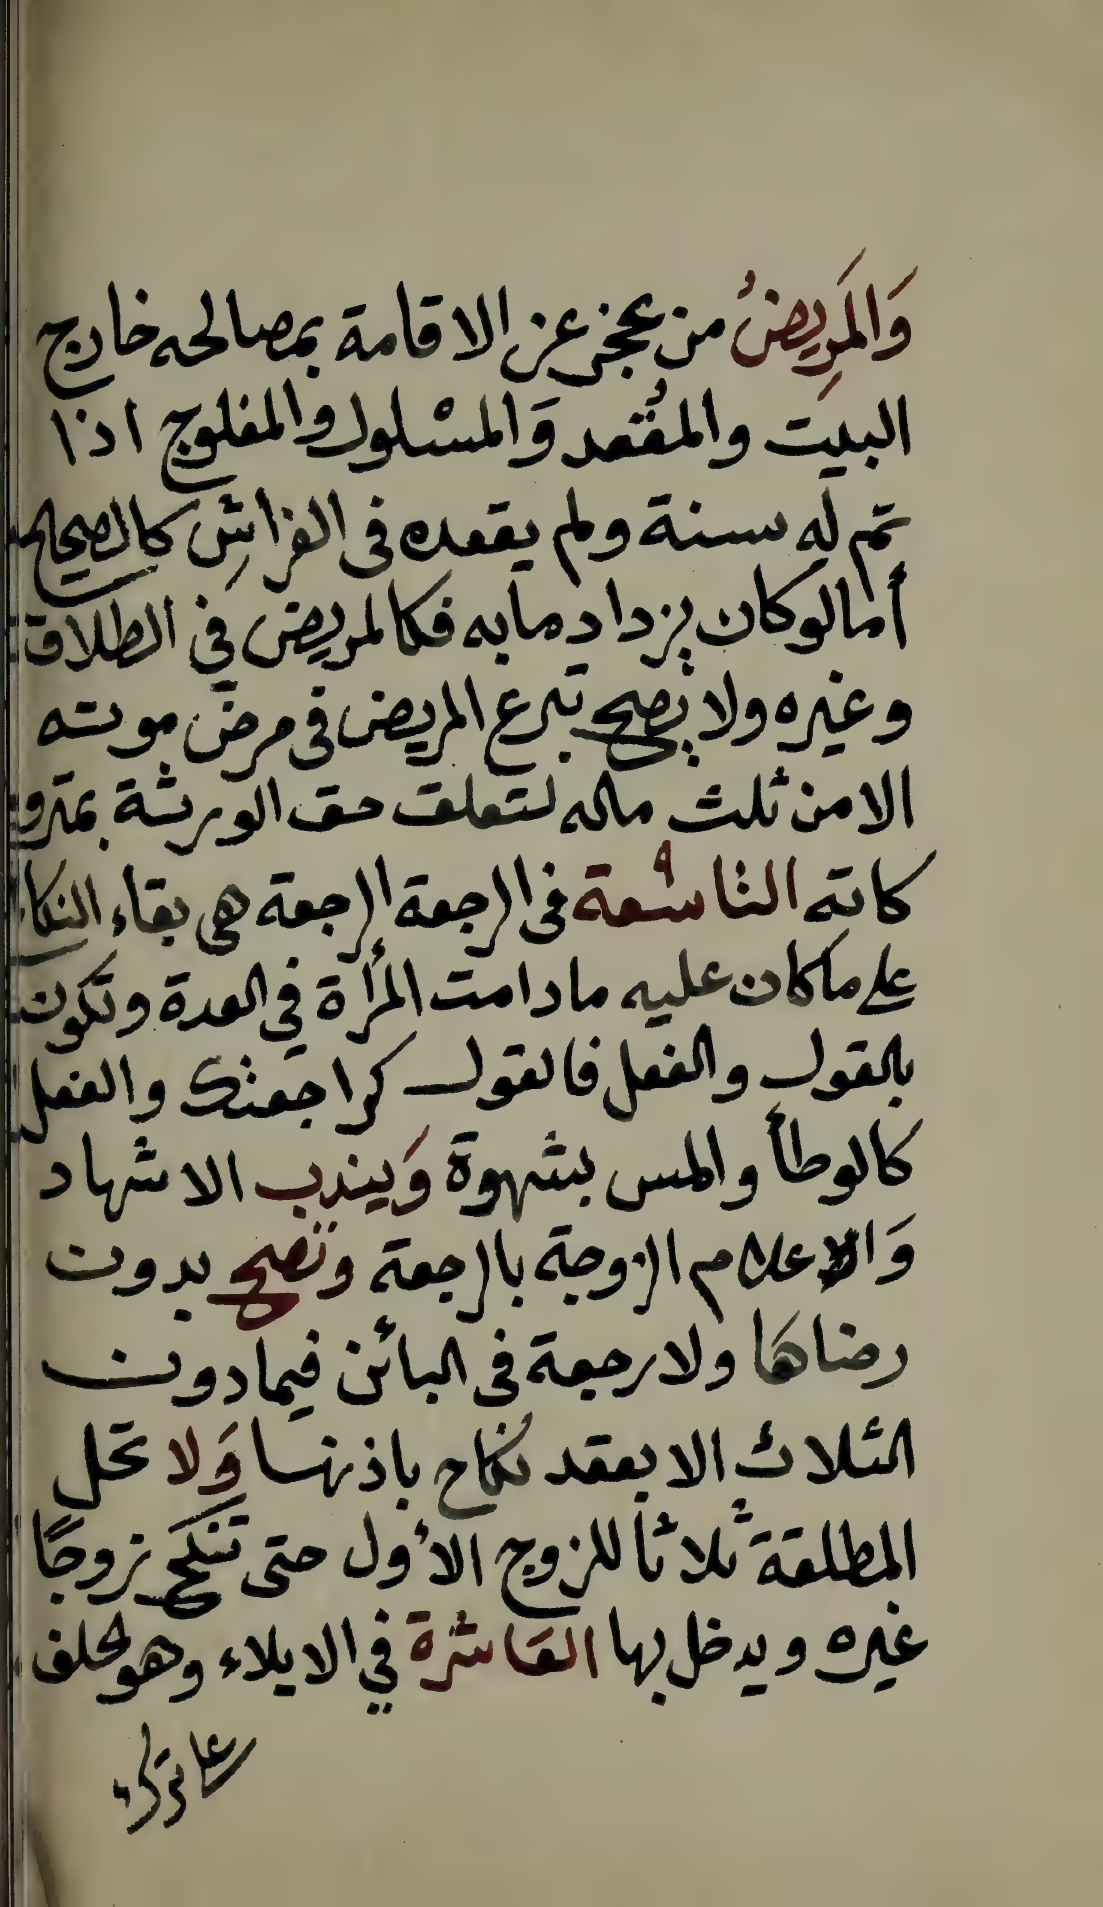 وَالمَرِيضُ من عجز عن الاقامة بمصالحه خارج
البيت والمقُعد وَالمسْلول والمفلوج اذا
تم له سنة ولم يقعده فى الفراشِ كالصحيح
أما لو كان يزداد ما به فكالمريض في الطلاق
وغيره ولا يصح تبرع المريض فى مرض موته
الا من ثلث ماله لتعلق حق الورثة بمترو
كاته التاسعة فى الرجعة الرجعة هي بقاء النكاح
على ما كان عليه ما دامت المرأة في العدة وتكون
بالقول والفعل فالقول كراجعتك والفعل
كالوطأ والمس بشهوة وَيندب الاشهاد
وَالاعلام الزوجة بالرجعة وتصح بدون
رضاهَا ولا رجعة فى البائن فيما دون
الثلاث الا بعقد نكاح باذنها وَلا تحل
المطلقة ثلاثاً للزوج الأول حتى تنكح زوجًا
غيره ويدخل بها العَاشرة في الايلاء وهو حلف
على ترك